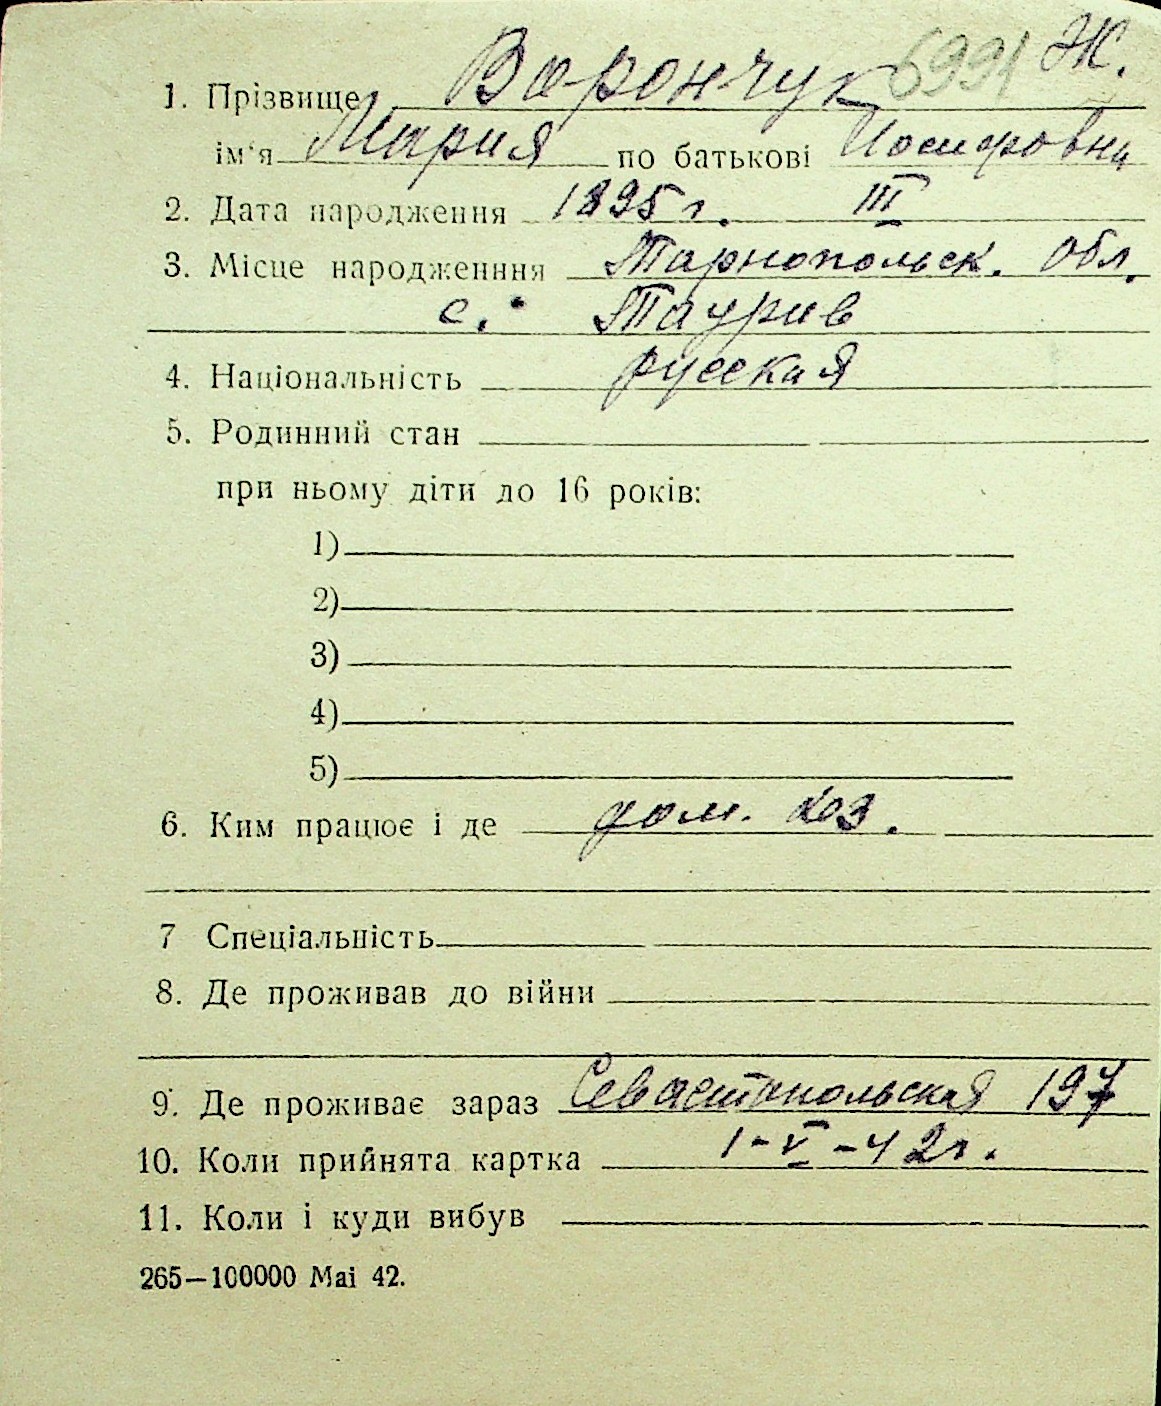 1. Прізвище Ворончук 6991 Ж.
ім'я Мария по батькові Иосифовна
2. Дата народження 1895 г. III
3. Місце народженння Тарнопольск. обл.
с. Таурив
4. Національність русская
5. Родинний стан
при ньому діти до 16 років:
1)
2)
3)
4)
5)
6. Ким працює і де дом. хоз.
7 Спеціальність
8. Де проживав до війни
9. Де проживає зараз Севастопольская 197
10. Коли прийнята картка 1-V-42 г.
11. Коли і куди вибув
265—100000 Маі 42.